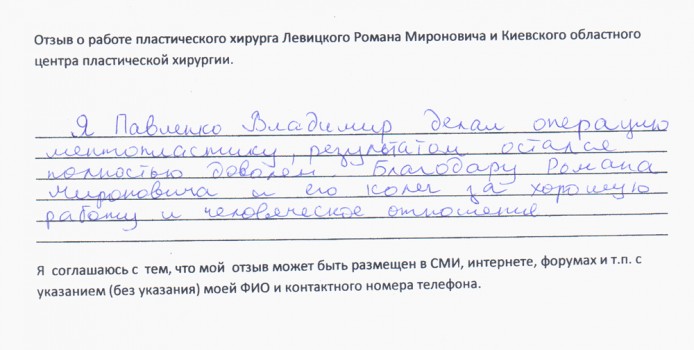 Отзыв о работе пластического хирурга Левицкого Романа Мироновича и Киевского областного
центра пластической хирургии.
Я Павленко Владимир делал операцию
ментопластику, результатом остался
полностью доволен. Благодару Романа
Мироновича и его колег за хорошую
работу и человеческое отношение
Я соглашаюсь с тем, что мой отзыв может быть размещен в СМИ, интернете, форумах и т.п. с
указанием (без указания) моей ФИО и контактного номера телефона.